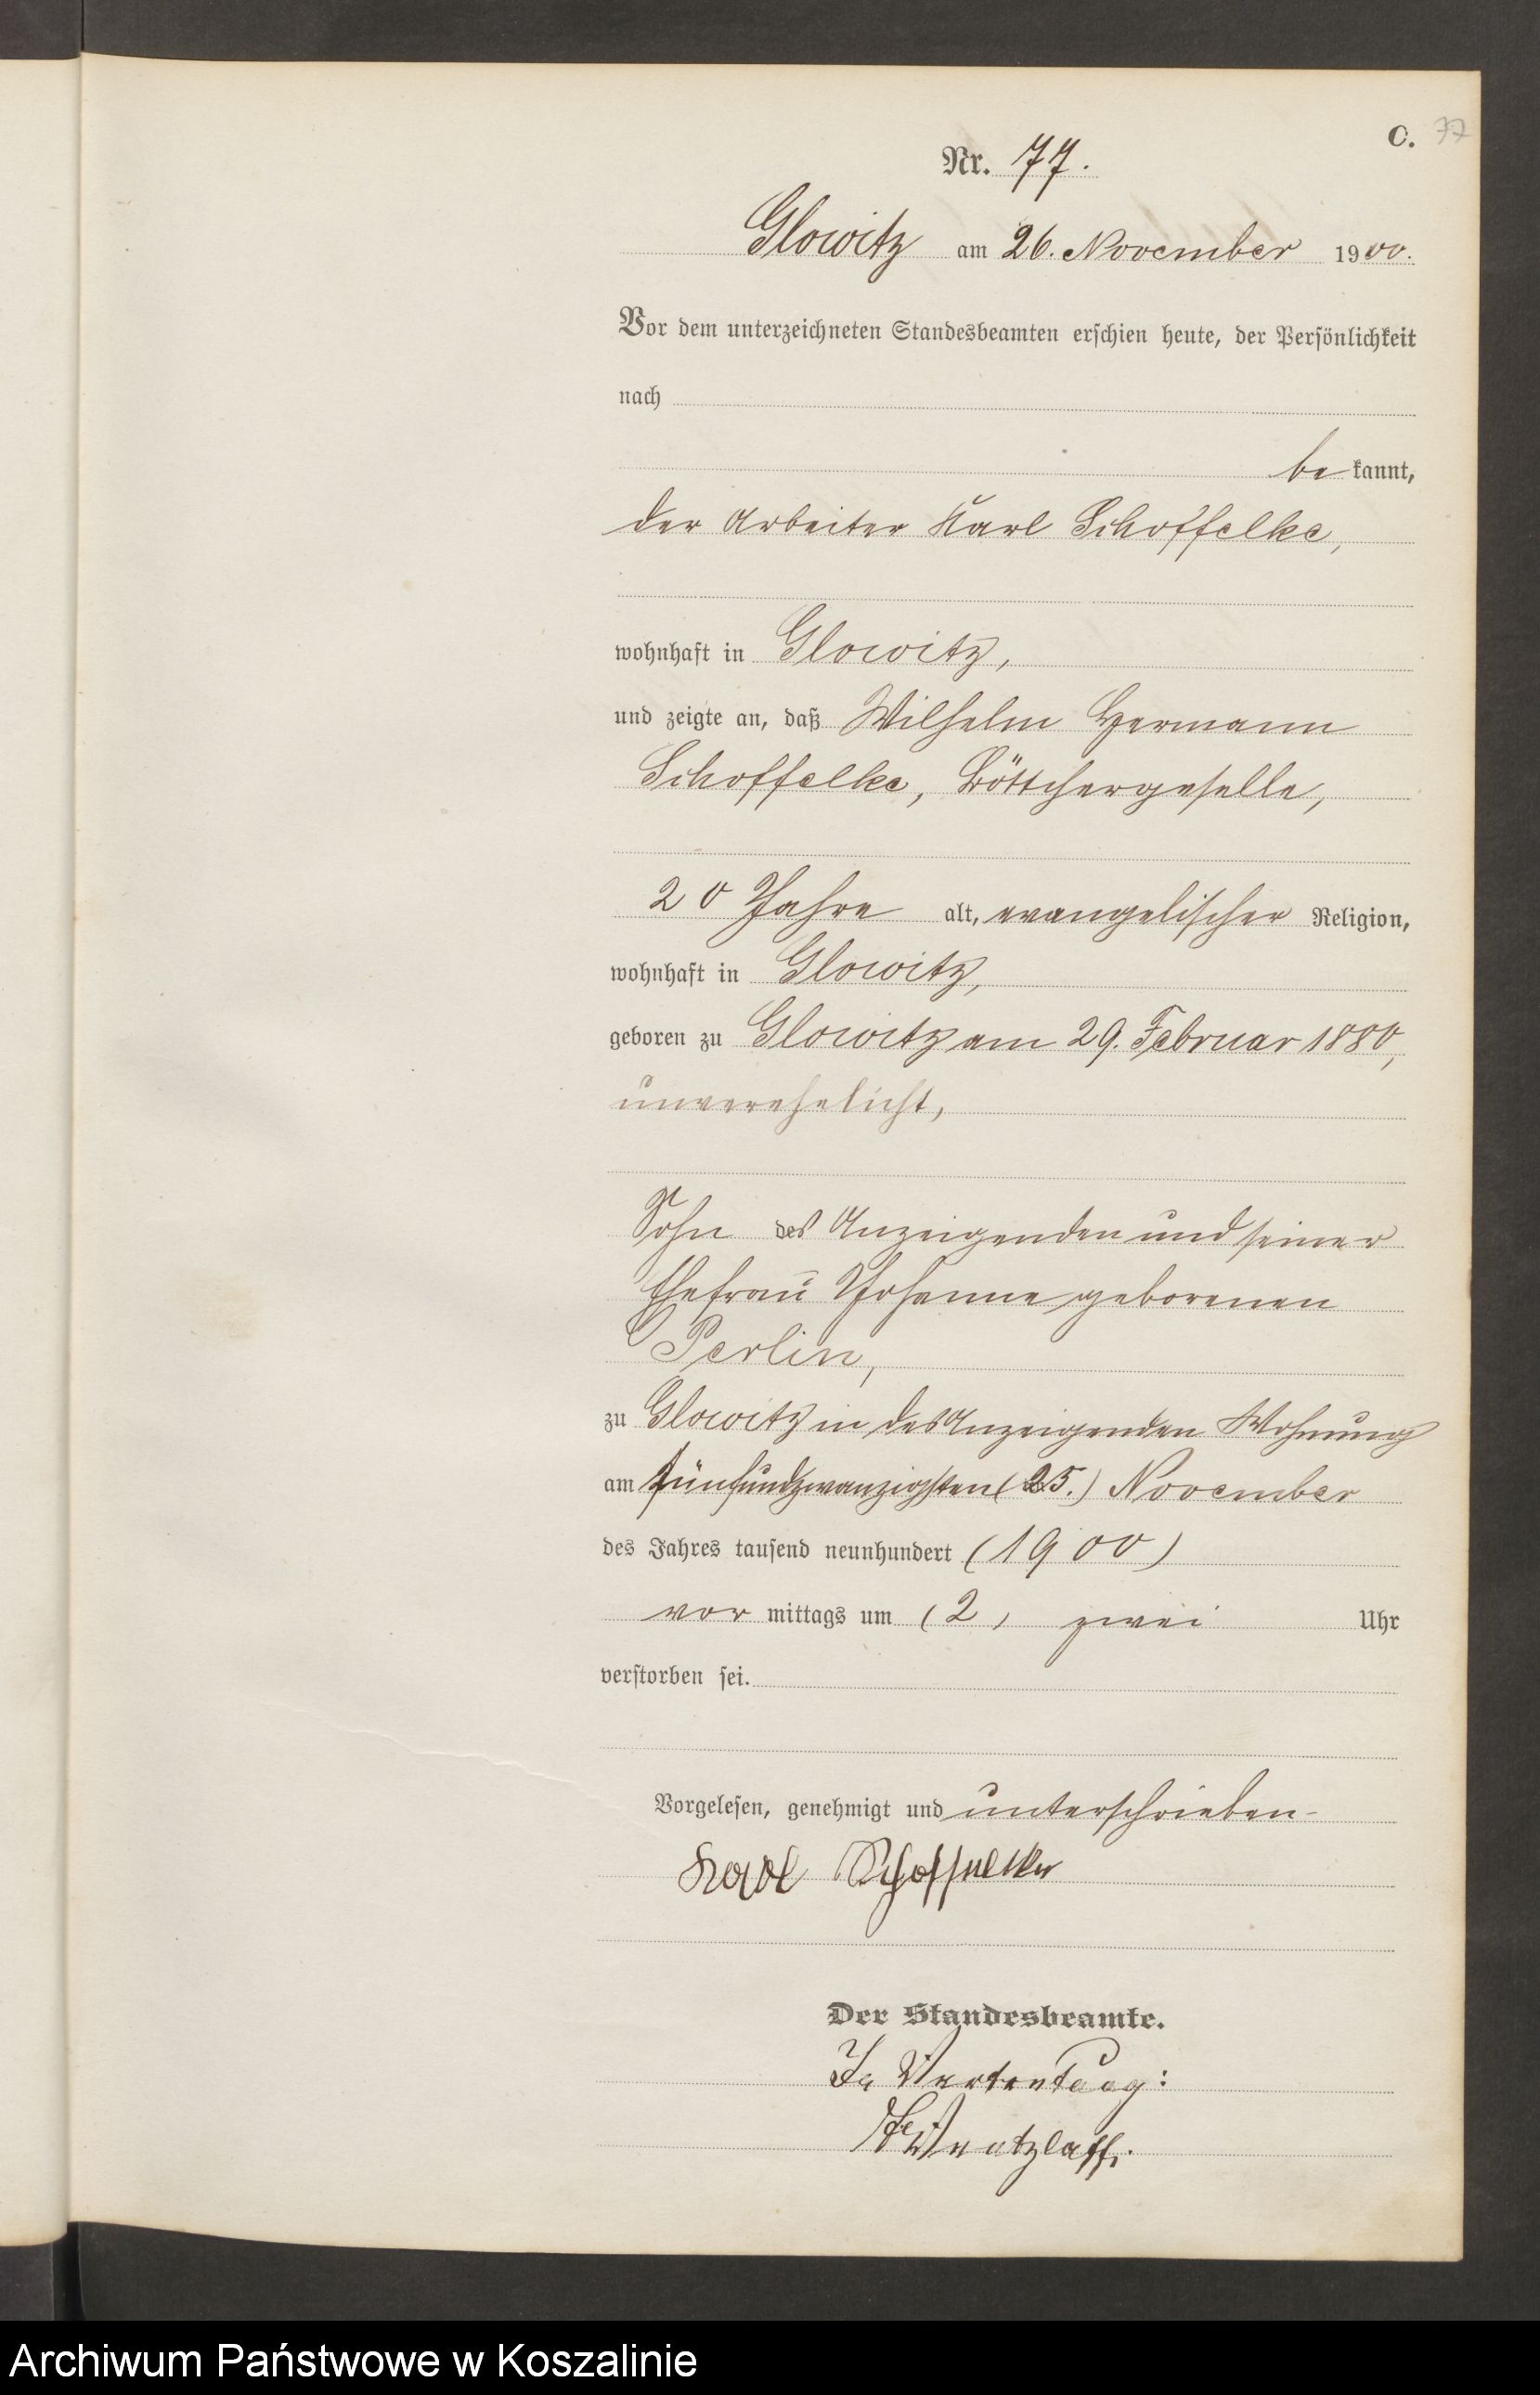 C. 77
Nr. 77.
Glowitz am 26. November 1900.
Vor dem unterzeichneten Standesbeamten erschien heute, der Persönlichkeit
nach
be kannt,
der Arbeiter Karl Schoffelke,
wohnhaft in Glowitz,
und zeigte an, daß Wilhelm Hermann
Schoffelke, Böttchergeselle,
20 Jahre alt, evangelischer Religion,
wohnhaft in Glowitz,
geboren zu Glowitz am 29. Februar 1880,
unverehelicht,
Sohn des Anzeigenden und seiner
Ehefrau Johanne geborenen
Perlin,
zu Glowitz in des Anzeigenden Wohnung
am fünfundzwanzigsten (25.) November
des Jahres tausend neunhundert (1900)
vor mittags um (2) zwei Uhr
verstorben sei.
Vorgelesen, genehmigt und unterschrieben
Karl Schoffelke
Der Standesbeamte.
In Vertretung:
Wentzlaff.
Archiwum Państwowe w Koszalinie